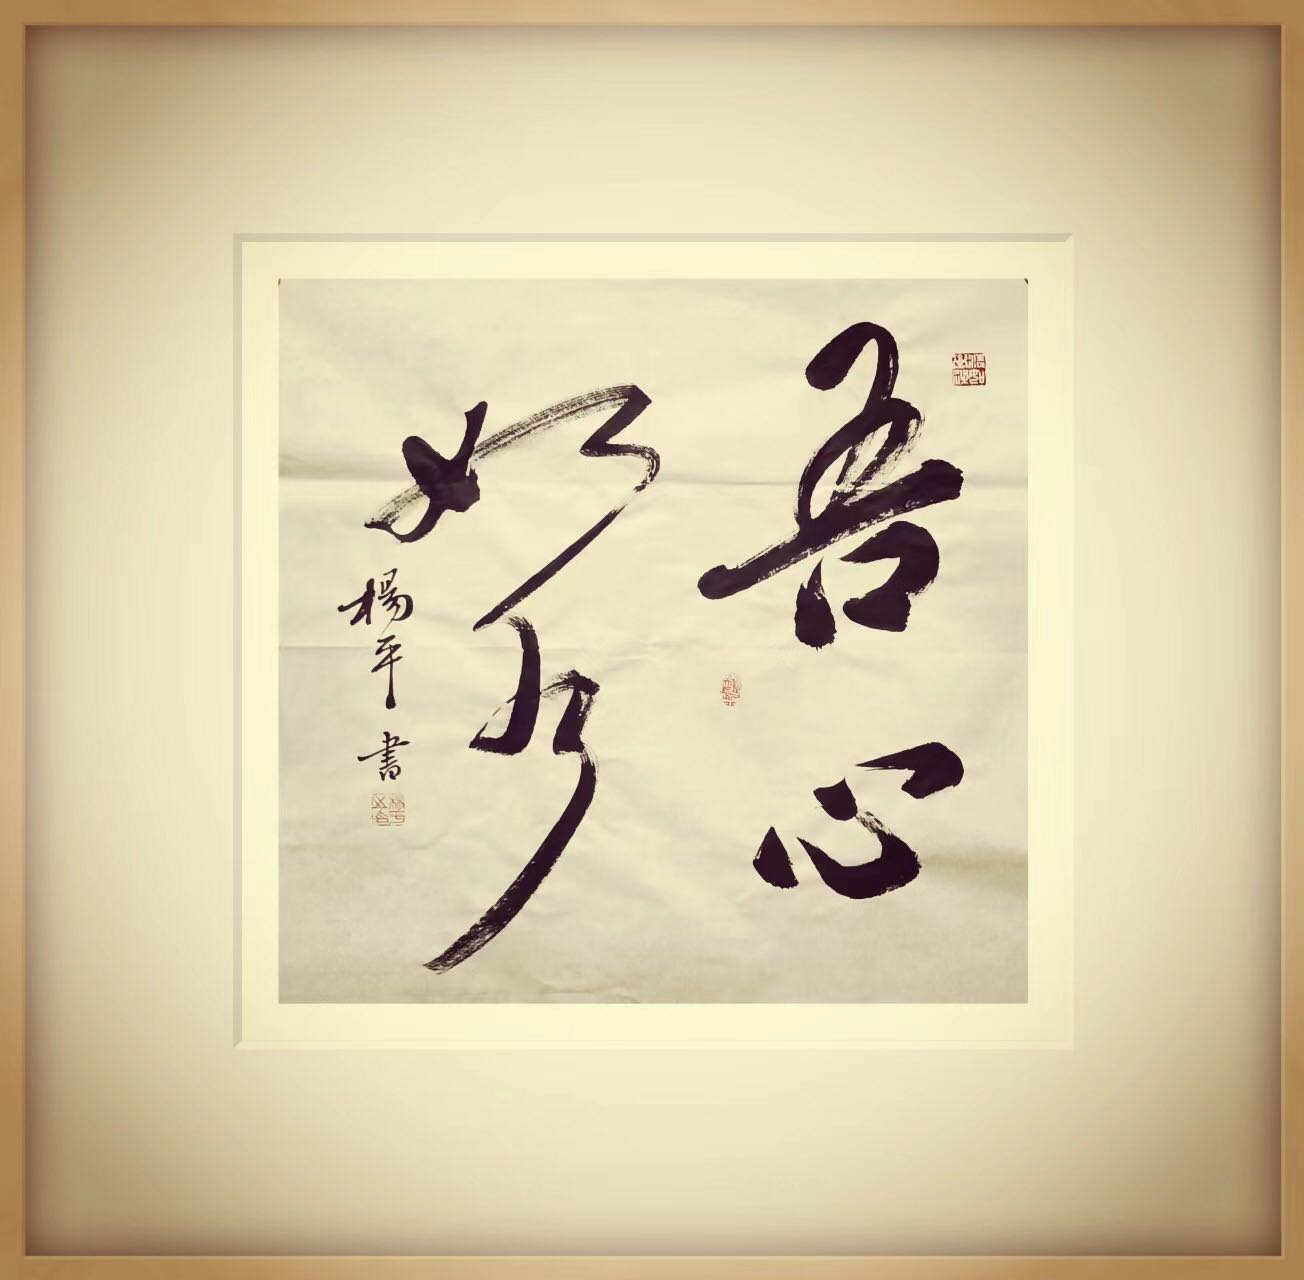 吾心
如水
楊平書